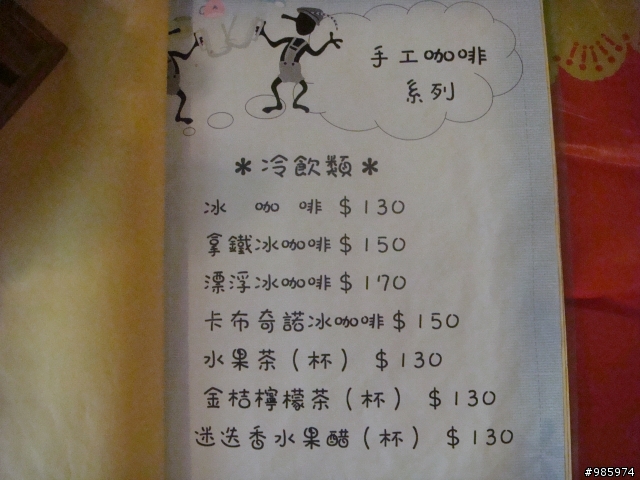 手工咖啡
系列
*冷飲類*
冰 咖 啡 $130
拿鐵冰咖啡 $150
漂浮冰咖啡 $170
卡布奇諾冰咖啡 $150
水果茶（杯） $130
金桔檸檬茶（杯） $130
迷迭香水果醋（杯） $130
#985974